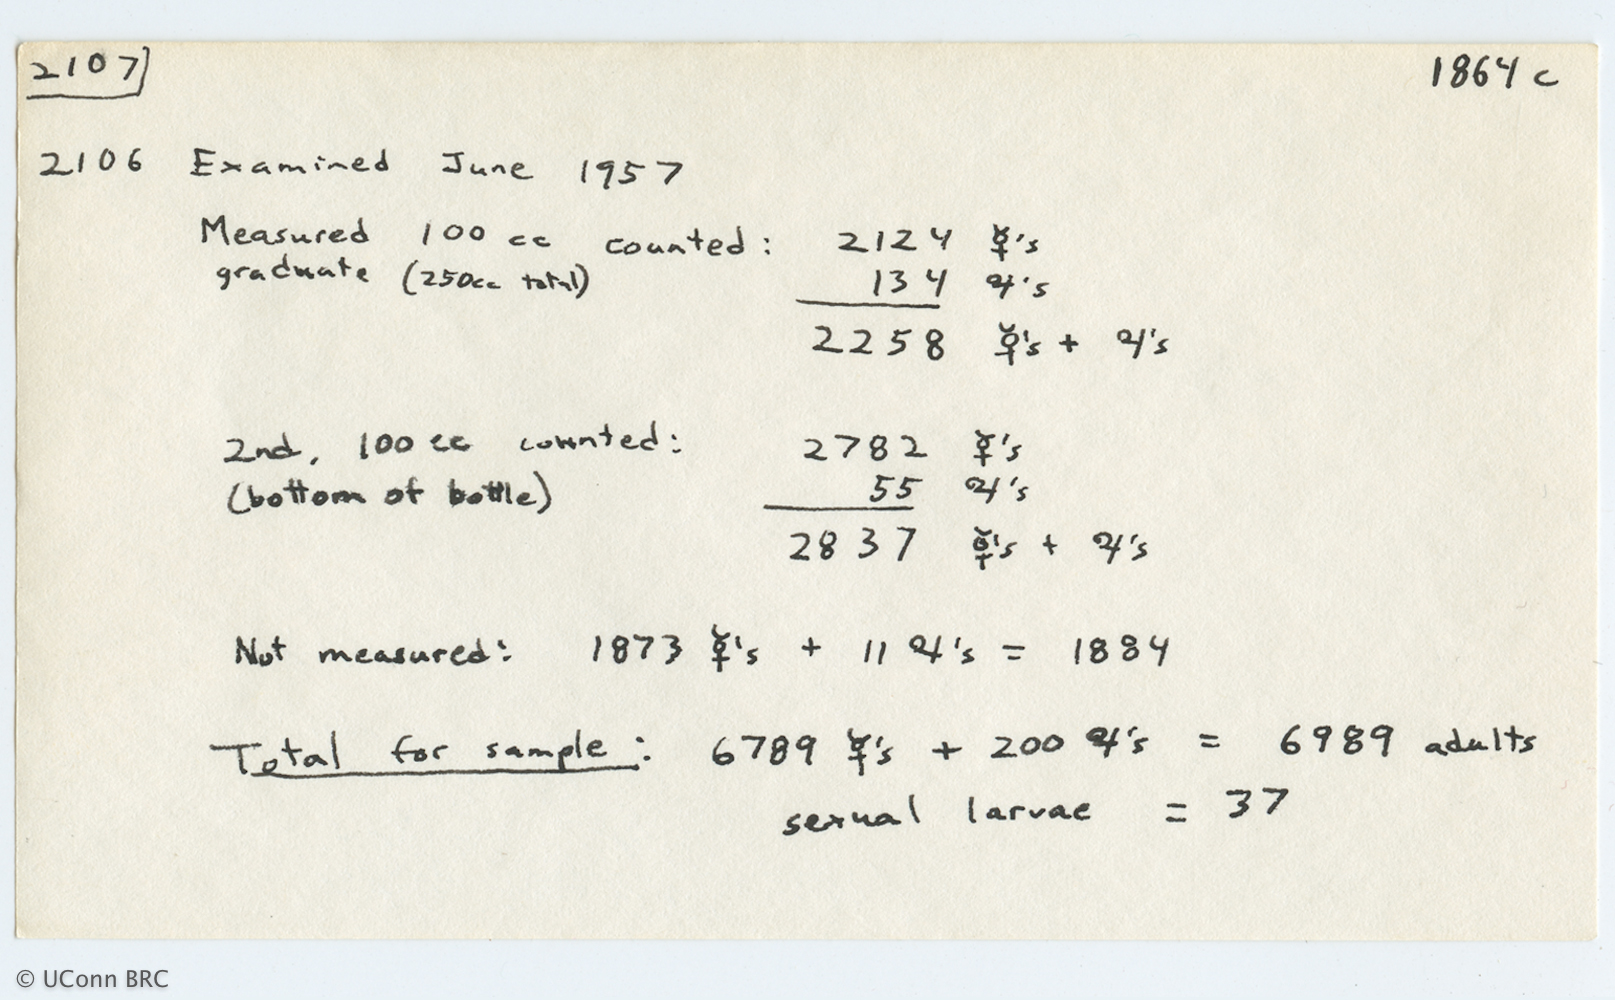 2107 1864 c
2106 Examined June 1957
Measured 100 cc counted: 2124 ☿'s
graduate (250cc total) 134 ♃'s
2258 ☿'s + ♃'s
2nd, 100 cc counted: 2782 ☿'s
(bottom of bottle) 55 ♃'s
2837 ☿'s + ♃'s
Not measured: 1873 ☿'s + 11 ♃'s = 1884
Total for sample: 6789 ☿'s + 200 ♃'s = 6989 adults
sexual larvae = 37
© UConn BRC